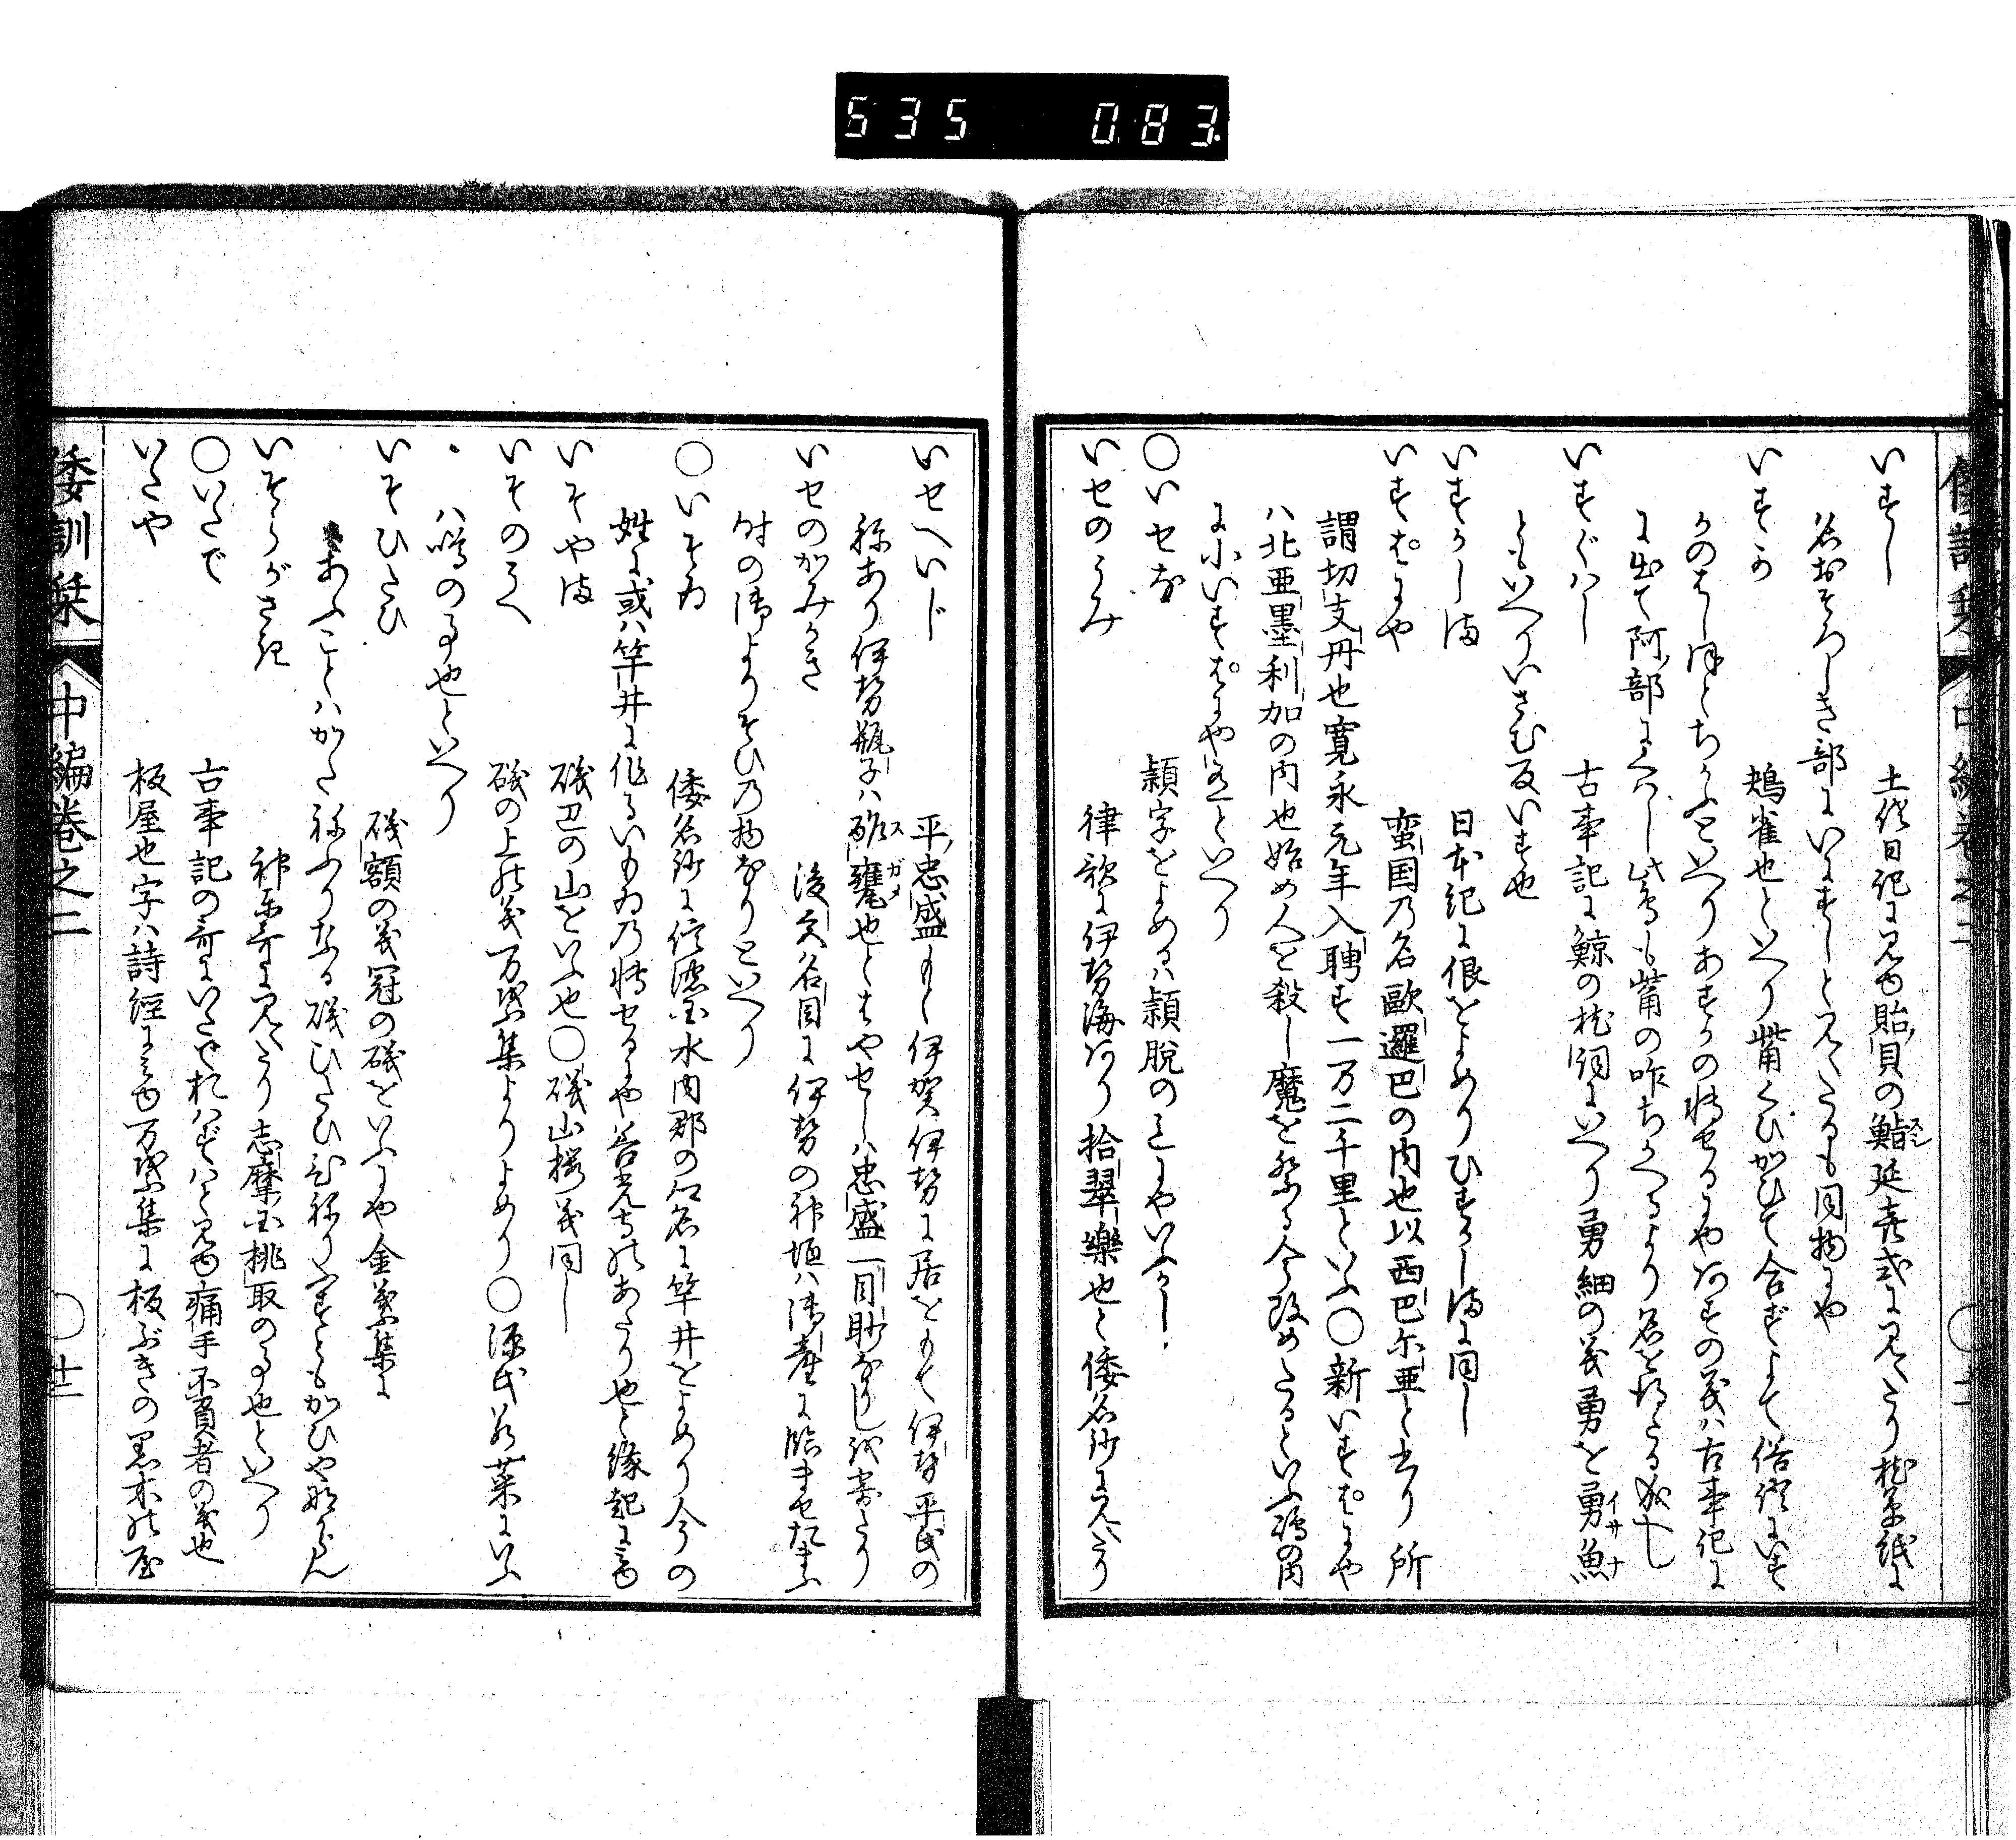 535 083
いすし 土佐日記に見ゆ貽貝の鮨延喜式に見えたり枕草紙に
名おそろしき部にいにすしと見えたるも同物にや
いすか 鵊雀也といへり觜くひがひて合ずよて俗諺にいす
かのはしほどちがふといへりあすかの転せるにや
に出て阿部にくはし此鳥も觜の咋ちがへるより名を得たる成へし
いすぐはし 古事記に鯨の枕詞にいへり勇細の義勇を勇魚イサナ
ともいへりいさむ反いす也
いすかしま 日本紀に佷をよめりひすかしまに同し
いすぱにや 蛮国の名歐邏巴の内也以西巴尓亜と書り所
謂切支丹也寛永元年入聘す一万二千里といふ〇新いすぱにや
ハ北亜墨利加の内也始め人を殺し魔を祭る今改めたるといふ
に小いすぱにや有といへり
〇いせな 穎字をよめるハ穎脱の
いせのうみ 律歌に伊勢海あり拾翠樂也と倭名鈔に見へたり
いせへいじ 平忠盛もし伊賀伊勢に居をもて伊勢平氏の
称あり伊勢瓶子ハ酢甕スガメ也とはやせしハ忠盛一目眇なりし故寄たり
いせのかみかき 後京名目に伊勢の神垣ハ御産に臨ませたまふ
時の御よりそひの物なりといへり
〇いそゐ 倭名鈔に信濃国水内郡の郷名に竿井をよめり今の
姓に或ハ竿井に作るいもゐの転せるにや善光寺のあたり也と縁起に見ゆ
いそやま 磯辺の山をいふ也〇磯山桜義同し
いそのうへ 磯の上の義万葉集よりよめり〇源氏若菜にいふ
ハ嶋の事也といへり
いそひたひ 磯額の義冠の磯をいふにや金葉集に
あふことハかたねふりなる磯ひたひひねりふすともかひやなからん
いそらがさき 神楽哥に見えたり志摩国桃取の事也といへり
〇いたで 古事記の哥にいたでおはずハと見ゆ痛手不負者の義也
いたや 板屋也字ハ詩經に見ゆ万葉集に板ぶきの黒木の屋
倭訓栞 中編巻之二 〇廿二